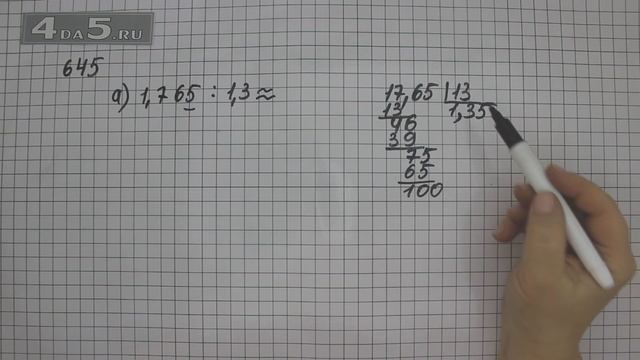 4да5.ru
645
а) 1,765 : 1,3 ≈
17,65 | 13
13 1,35
46
39
75
65
100